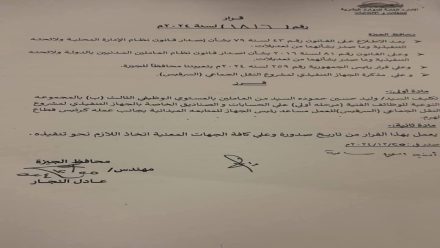 قرار
رقم (١٨١٦) لسنة ٢٠٢٤م
محافظ الجيزة
بعد الاطلاع على القانون رقم ٤٣ لسنة ٧٩ بشأن إصدار قانون نظام الإدارة المحلية ولائحته
التنفيذية وما صدر بشأنهما من تعديلات.
وعلى القانون ٨١ لسنة ٢٠١٦ بإصدار قانون نظام العاملين المدنيين بالدولة ولائحته
التنفيذية وما صدر بشأنهما من تعديلات.
وعلى قرار رئيس الجمهورية رقم ٢٥٩ لسنة ٢٠٢٤م بتعييننا محافظاً للجيزة.
وعلى مذكرة الجهاز التنفيذي لمشروع النقل الجماعي (السرفيس).
قـــرر
مادة أولى:
تكليف السيد/ وليد حسين حموده السيد من العاملين بالمستوى الوظيفي الثالث (ب) بالمجموعة
النوعية للوظائف الفنية (مرحلة أولى) على الحسابات والصناديق الخاصة بالجهاز التنفيذي لمشروع
النقل الجماعي (السرفيس) للعمل مساعد رئيس الجهاز للمتابعة الميدانية بجانب عمله كرئيس قطاع
الهرم.
مادة ثانية:
يعمل بهذا القرار من تاريخ صدوره وعلى كافة الجهات المعنية اتخاذ اللازم نحو تنفيذه.
صدر في: ٢٠٢٤/١٢/٢٥م
محافظ الجيزة
مهندس/
عادل النجار